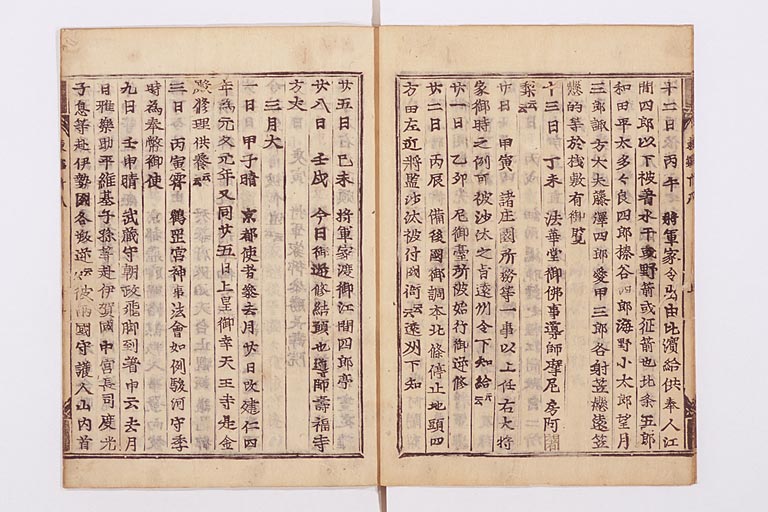 十二日 丙午 將軍家令出由比濱給供奉人江
間四郎以下被着水干或野箭或征箭也北条五郎
和田平太多々良四郎榛谷四郎海野小太郎望月
三郎諏方大夫藤澤四郎愛甲三郎各射笠懸遠笠
懸的等於棧敷有御覧
十三日 丁未 法華堂御佛事導師摩尼房阿闍
梨云々
廿日 甲寅 諸庄園所務等一事以上任右大將
家御時之例可被沙汰之旨遠州令下知給云々
廿一日 乙卯 尼御臺所被始行御逆修
廿二日 丙辰 備後國御調本北條停止地頭四
方田左近將監沙汰被付國衙云々遠州下知
廿五日 己未 將軍家渡御江間四郎亭
廿八日 壬戌 今日御逆修結願也導師壽福寺
方丈
三月大
一日 甲子晴 京都使者參去月廿日改建仁四
年為元久元年又同廿五日上皇御幸天王寺是金
殿修理供養云々
三日 丙寅霽 鶴岡宮神事法會如例駿河守季
時為奉幣御使
九日 壬申晴 武藏守朝政飛脚到着申云去月
日雅樂助平維基子孫等赴伊賀國中宮長司度光
子息等赴伊勢國各叛逆云々彼兩國守護人山内首